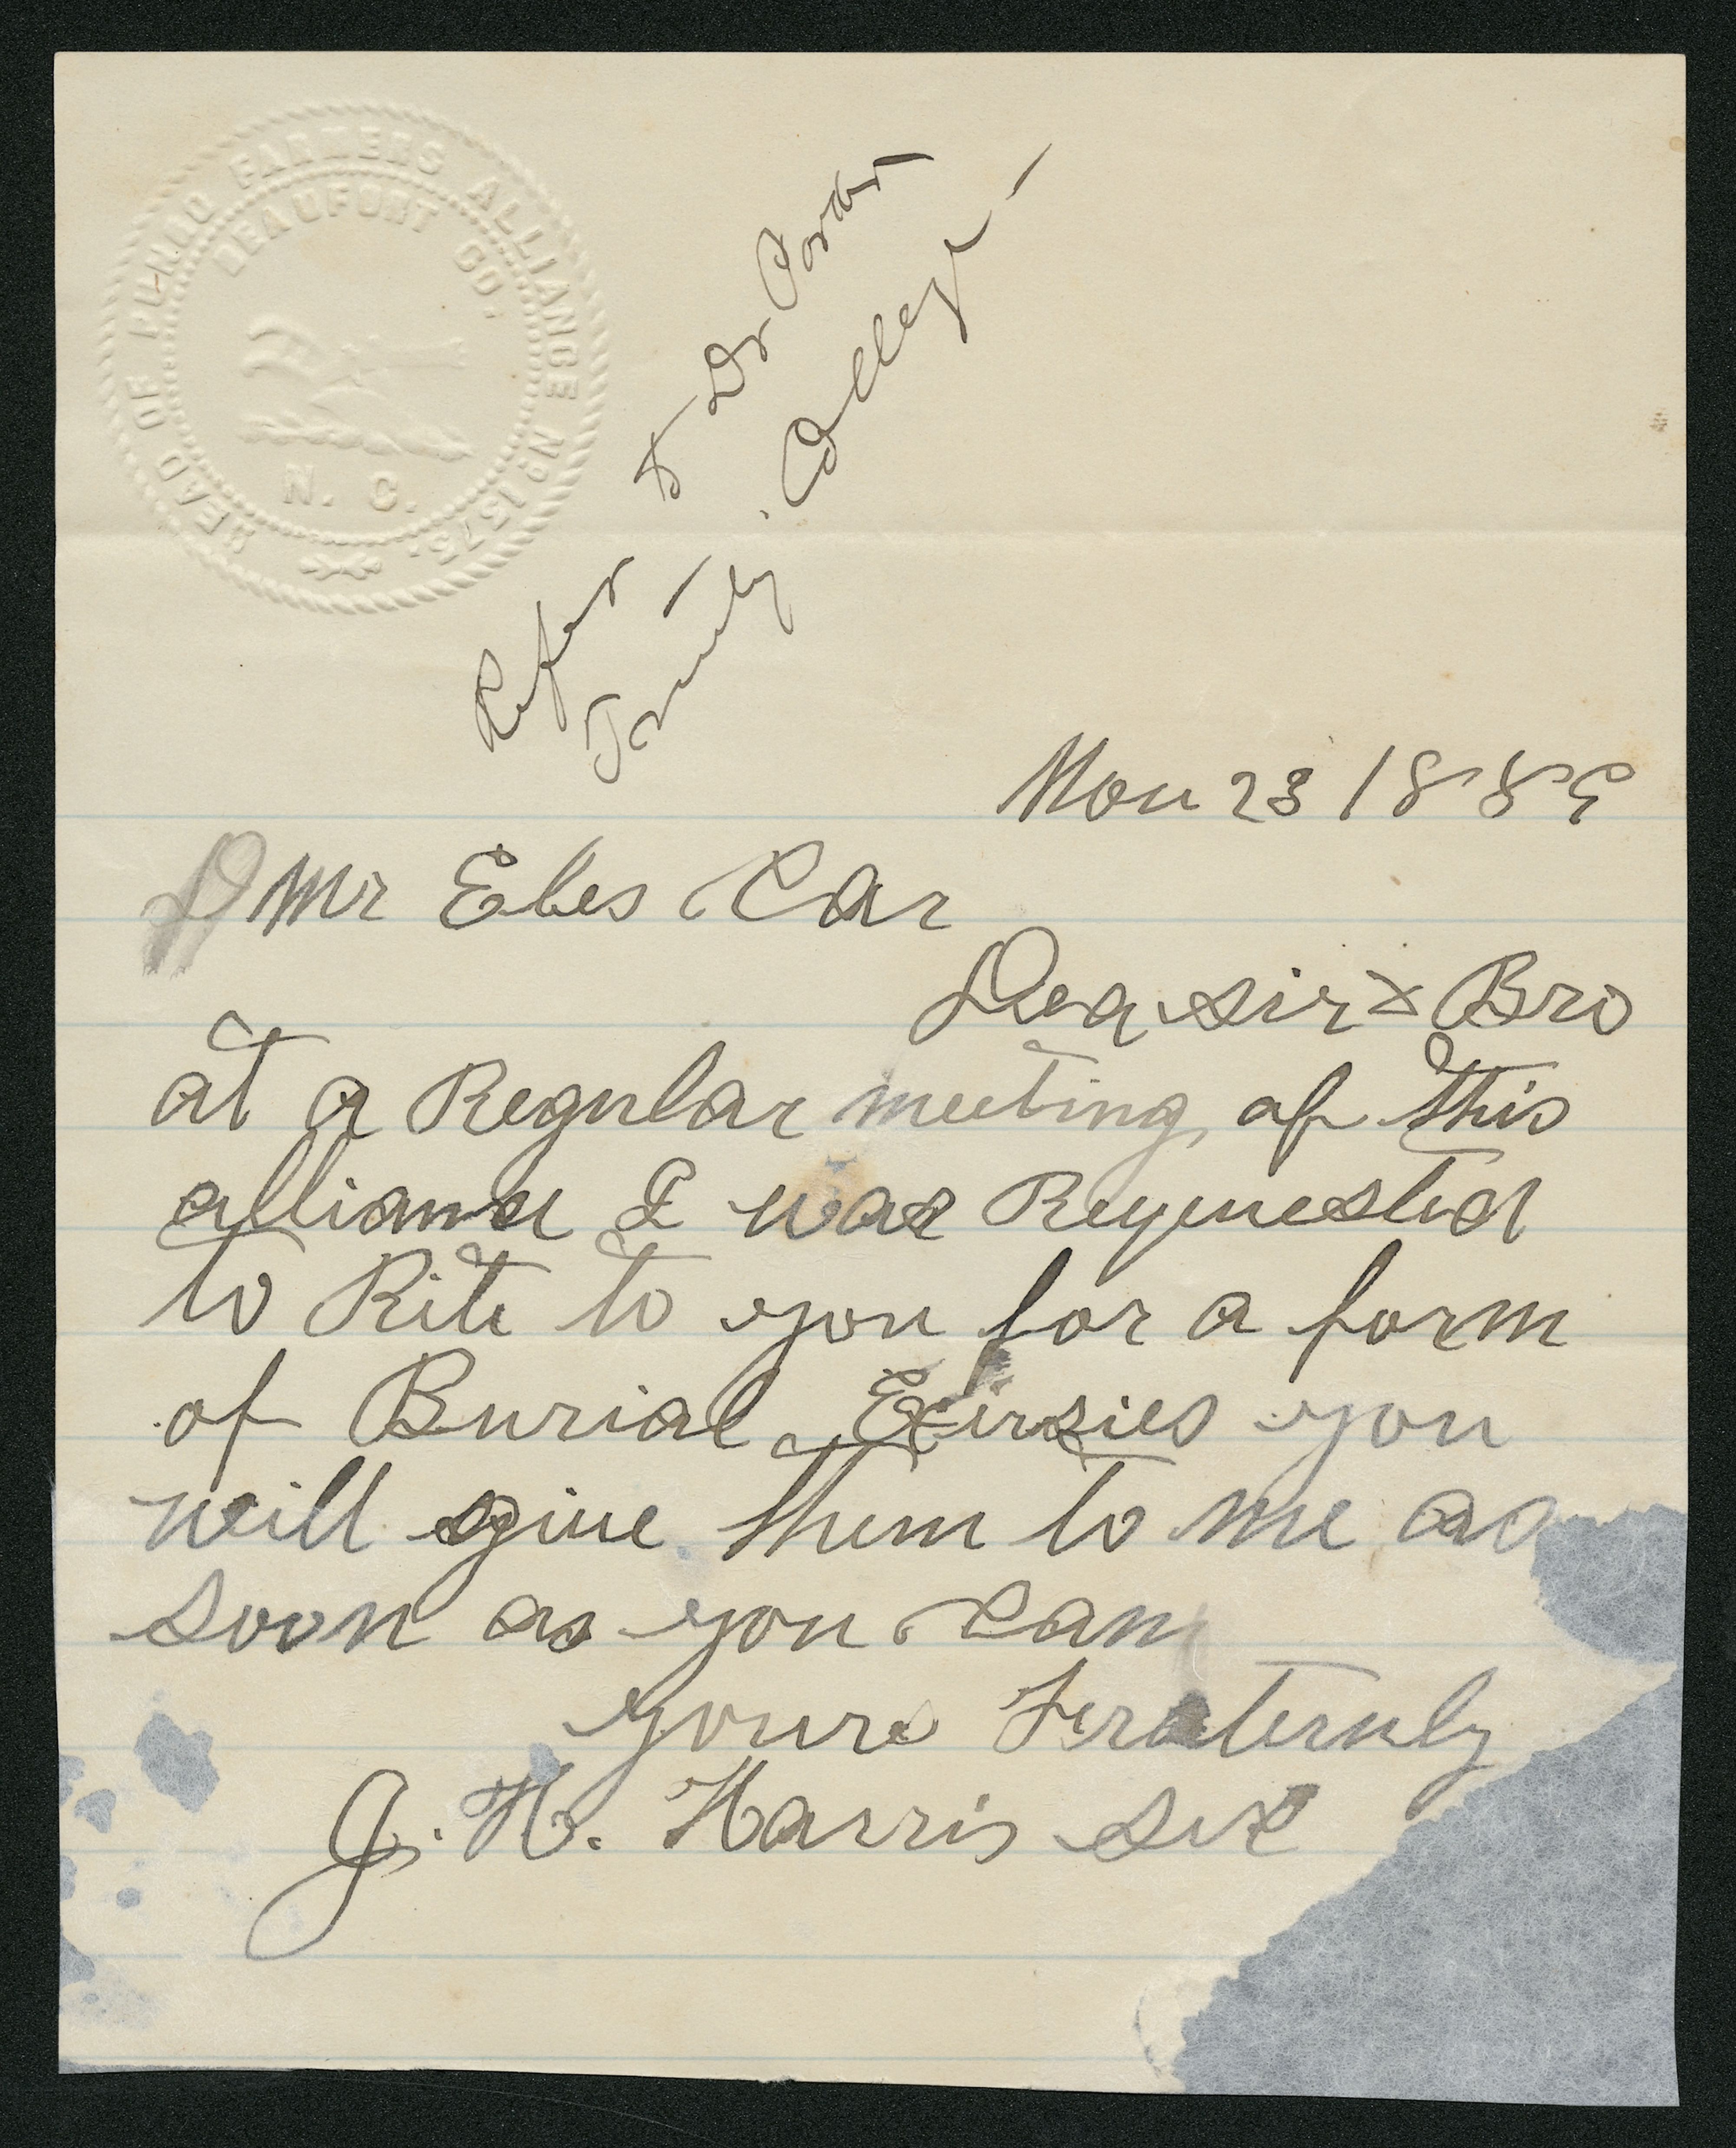 HEAD OF PUNGO FARMERS ALLIANCE No 1575.
BEAUFORT CO.
N. C.
Refer to Dr
Trinity College -
Nov 23 1889
Mr Eles Car
Dea sir & Bro
at a Regular meeting of this
alliance I was Requested
to Rite to you for a form
of Burial Exirsies you
will give them to me as
soon as you can
yours Feraternly
J. H. Harris Sec